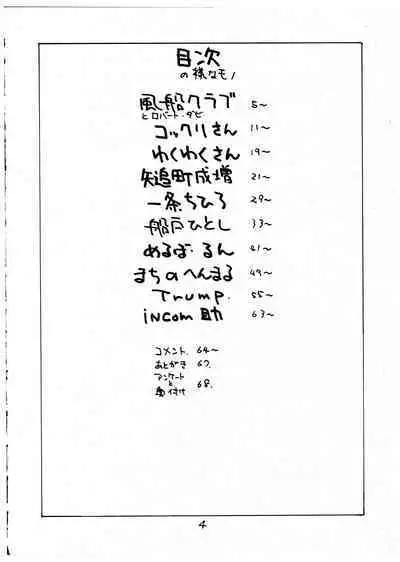 目次
の様なモノ
風船クラブ 5〜
とロバート・ダビ
コックリさん 11〜
わくわくさん 19〜
矢追町成増 21〜
一条ちひろ 29〜
船戸ひとし 33〜
めるば・るん 41〜
まちのへんまる 49〜
Trump. 55〜
iNCom助 63〜
コメント. 64〜
あとがき 67.
アンケートと 68.
4